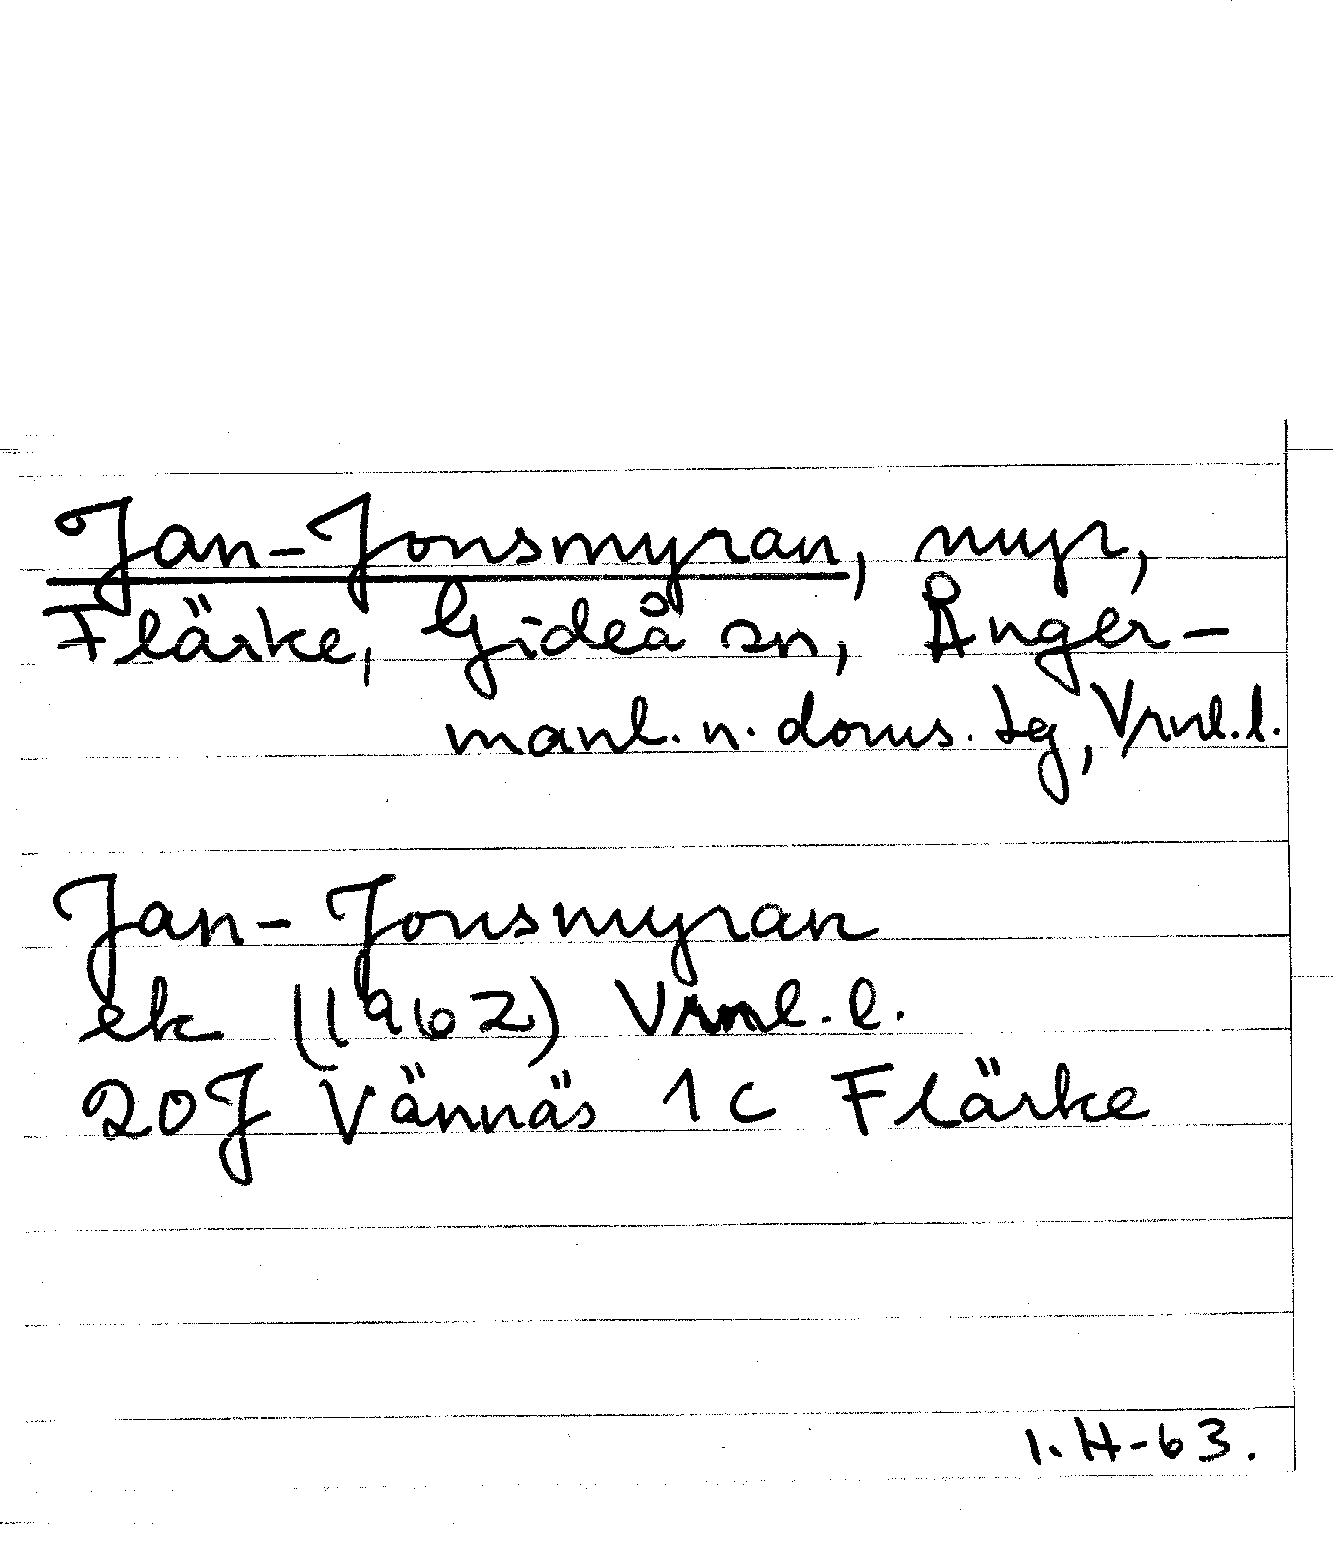 Jan-Jonsmyran, myr,
Flärke, Gideå sn, Ånger-
manl. n. doms. tg, Vrnl. l.
Jan-Jonsmyran
ek (1962) Vrnl. l.
20J Vännäs 1c Flärke
I. H-63.